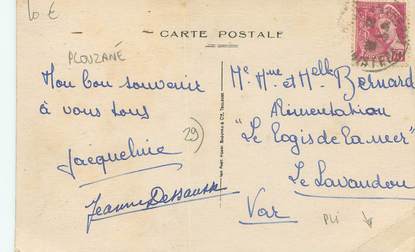 10 €
CARTE POSTALE
PLOUZANÉ
Mon bon souvenir
à vous tous
Jacqueline
Jeanne
29
Mr Mme et Melle Bernard
Alimentation
"Le Logis de la mer"
Le Lavandou
Var
PLI